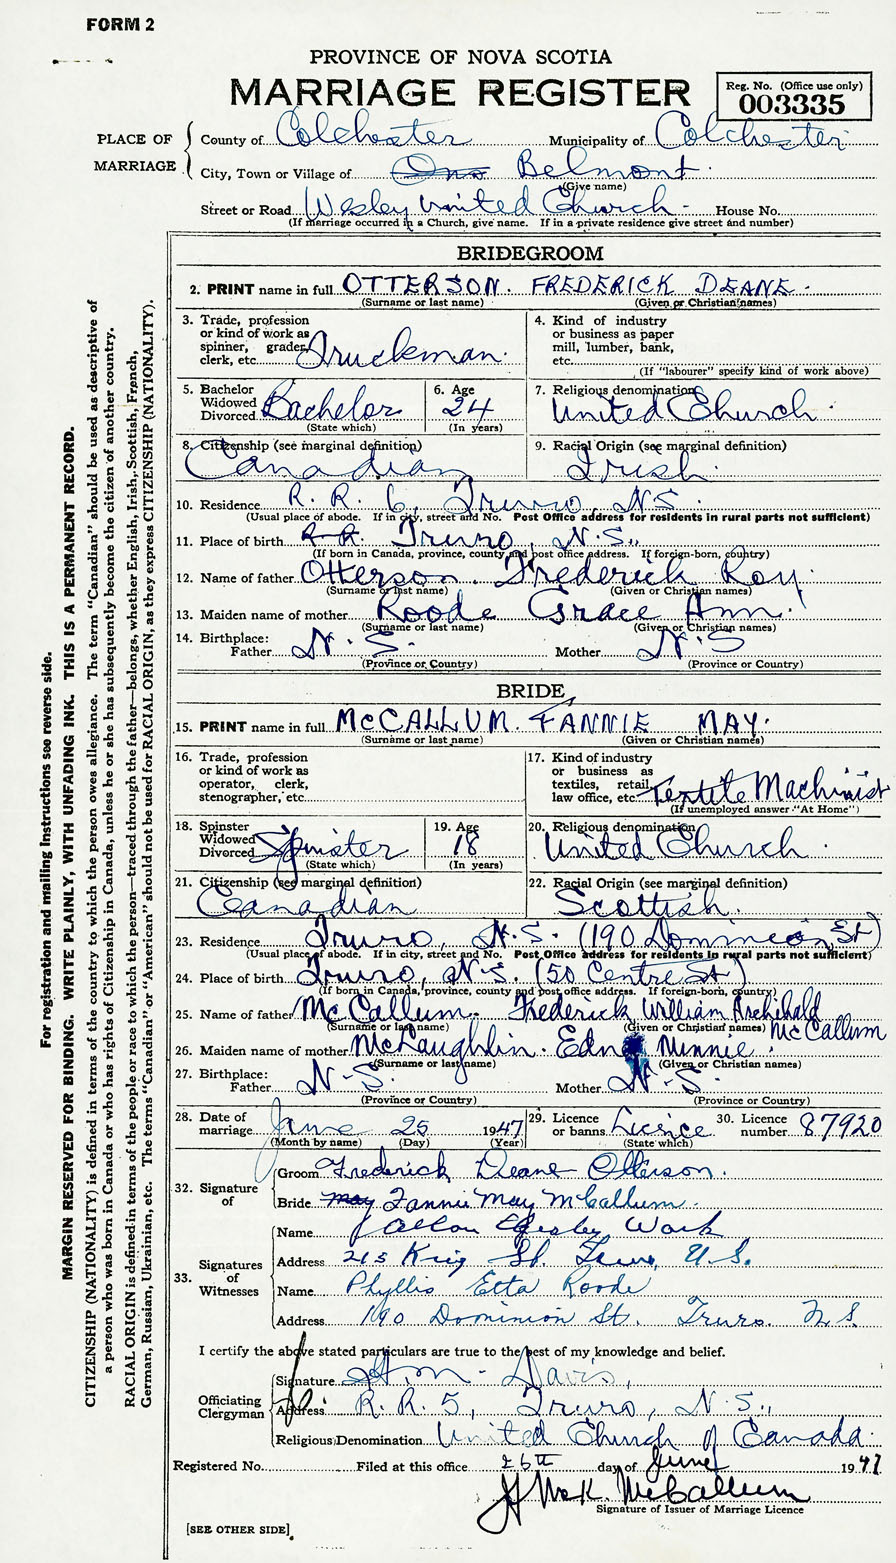 FORM 2
PROVINCE OF NOVA SCOTIA
MARRIAGE REGISTER
Reg. No. (Office use only)
003335
PLACE OF MARRIAGE
County of Colchester Municipality of Colchester
City, Town or Village of Belmont
(Give name)
Street or Road Wesley United Church - House No.
(If marriage occurred in a Church, give name. If in a private residence give street and number)
BRIDEGROOM
2. PRINT name in full OTTERSON. FREDERICK DEANE.
(Surname or last name) (Given or Christian names)
3. Trade, profession or kind of work as spinner, grader, clerk, etc. Truckman.
4. Kind of industry or business as paper mill, lumber, bank, etc.
(If "labourer" specify kind of work above)
5. Bachelor Widowed Divorced Bachelor
(State which)
6. Age 24
(In years)
7. Religious denomination United Church.
8. Citizenship (see marginal definition) Canadian
9. Racial Origin (see marginal definition) Irish.
10. Residence R. R. 6, Truro N.S.
(Usual place of abode. If in city, street and No. Post Office address for residents in rural parts not sufficient)
11. Place of birth R R Truro, N.S.
(If born in Canada, province, county and post office address. If foreign-born, country)
12. Name of father Otterson. Frederick Roy.
(Surname or last name) (Given or Christian names)
13. Maiden name of mother Roode Grace Ann.
(Surname or last name) (Given or Christian names)
14. Birthplace:
Father N. S. Mother N. S
(Province or Country) (Province or Country)
BRIDE
15. PRINT name in full McCALLUM. FANNIE MAY.
(Surname or last name) (Given or Christian names)
16. Trade, profession or kind of work as operator, clerk, stenographer, etc.
17. Kind of industry or business as textiles, retail, law office, etc. Textile Machinist
(If unemployed answer "At Home")
18. Spinster Widowed Divorced Spinster
(State which)
19. Age 18
(In years)
20. Religious denomination United Church.
21. Citizenship (see marginal definition) Canadian
22. Racial Origin (see marginal definition) Scottish.
23. Residence Truro, N.S. (190 Dominion St)
(Usual place of abode. If in city, street and No. Post Office address for residents in rural parts not sufficient)
24. Place of birth Truro, N.S. (50 Centre St)
(If born in Canada, province, county and post office address. If foreign-born, country)
25. Name of father McCallum. Frederick William Archibald McCallum
(Surname or last name) (Given or Christian names)
26. Maiden name of mother McLaughlin. Edna Minnie.
(Surname or last name) (Given or Christian names)
27. Birthplace:
Father N-S. Mother N-S.
(Province or Country) (Province or Country)
28. Date of marriage June 25 1947
(Month by name) (Day) (Year)
29. Licence or banns Licence
(State which)
30. Licence number 87920
32. Signature of
Groom Frederick Deane Otterson.
Bride may Fannie May McCallum.
33. Signatures of Witnesses
Name Wesley Work
Address 215 King St. Truro, N.S.
Name Phyllis Etta Roode
Address 190 Dominion St. Truro N.S.
I certify the above stated particulars are true to the best of my knowledge and belief.
Officiating Clergyman
Signature Davis,
Address R. R. 5, Truro, N.S.,
Religious Denomination United Church of Canada.
Registered No. Filed at this office 26th day of June 1947
McCallum
Signature of Issuer of Marriage Licence
[SEE OTHER SIDE]
For registration and mailing instructions see reverse side.
MARGIN RESERVED FOR BINDING. WRITE PLAINLY, WITH UNFADING INK. THIS IS A PERMANENT RECORD.
CITIZENSHIP (NATIONALITY) is defined in terms of the country to which the person owes allegiance. The term "Canadian" should be used as descriptive of
a person who was born in Canada or who has rights of Citizenship in Canada, unless he or she has subsequently become the citizen of another country.
RACIAL ORIGIN is defined in terms of the people or race to which the person—traced through the father—belongs, whether English, Irish, Scottish, French,
German, Russian, Ukrainian, etc. The terms "Canadian" or "American" should not be used for RACIAL ORIGIN, as they express CITIZENSHIP (NATIONALITY).